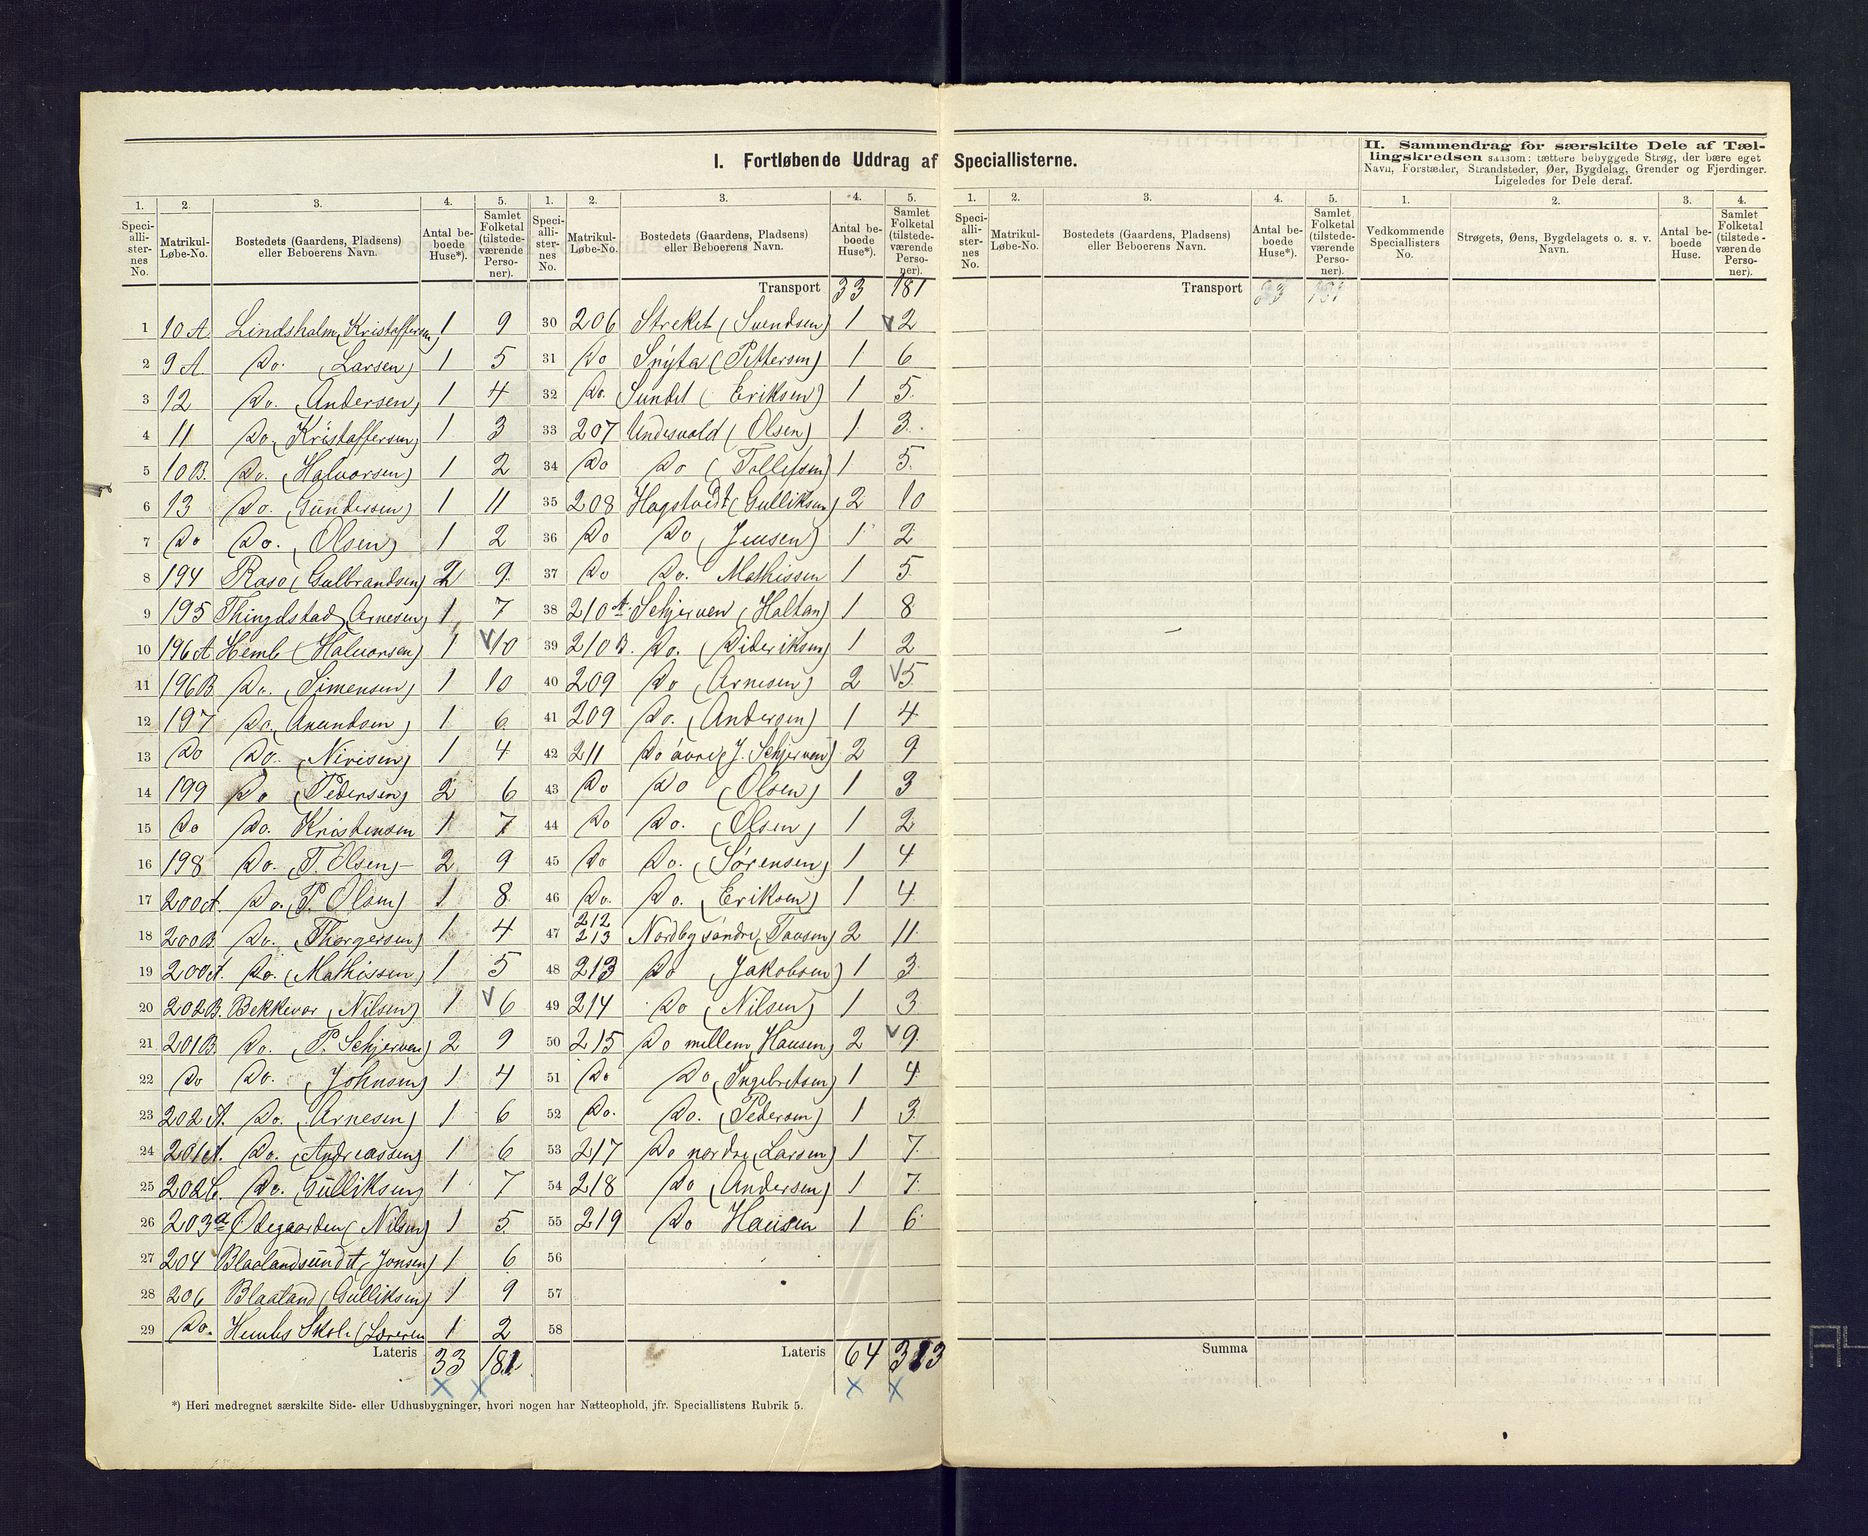 I. Fortløbende Uddrag af Speciallisterne.
II. Sammendrag for særskilte Dele af Tæl-
lingskredsen saasom: tættere bebyggede Strøg, der bære eget
Navn, Forstæder, Strandsteder, Øer, Bygdelag, Grender og Fjerdinger.
Ligeledes for Dele deraf.
1. 2. 3. 4. 5. 1. 2. 3. 4. 5. 1. 2. 3. 4. 5. 1. 2. 3. 4.
Speci-alli-ster-nes No. Matrikul-Løbe-No. Bostedets (Gaardens, Pladsens) eller Beboerens Navn. Antal be-boede Huse*). Samlet Folketal (tilstede-værende Perso-ner).
Speci-alli-ster-nes No. Matrikul-Løbe-No. Bostedets (Gaardens, Pladsens) eller Beboerens Navn. Antal be-boede Huse*). Samlet Folketal (tilstede-værende Perso-ner).
Speci-alli-ster-nes No. Matrikul-Løbe-No. Bostedets (Gaardens, Pladsens) eller Beboerens Navn. Antal be-boede Huse*). Samlet Folketal (tilstede-værende Perso-ner).
Vedkommende Speciallisters No. Strøgets, Øens, Bygdelagets o. s. v. Navn. Antal be-boede Huse. Samlet Folketal (tilstede-værende Perso-ner).
1 10A Lindsholm (Kristoffersen) 1 9
2 9A Do. (Larsen) 1 5
3 12 Do. (Andersen) 1 4
4 11 Do. (Kristoffersen) 1 3
5 10B. Do. (Halvorsen) 1 2
6 13 Do. (Gundersen) 1 11
7 Do Do. (Olsen) 1 2
8 194 Raso (Gulbrandsen) 2 9
9 195 Thingstad (Arnesen) 1 7
10 196A Hemb (Halvorsen) 1 10
11 196B Do. (Simensen) 1 10
12 197 Do. (Anundsen) 1 6
13 Do Do. (Nirisen) 1 4
14 199 Do (Pedersen) 2 6
15 Do Do. Kristensen 1 7
16 198 Do. (T. Olsen) 2 9
17 200A. Do. (P. Olsen) 1 8
18 200B Do. (Thorgersen) 1 4
19 200A. Do. (Mathissen) 1 5
20 202B. Bekkevar (Nilsen) 1 6
21 201B. Do. (P. Schjerven) 2 9
22 Do Do. (Johnsen) 1 4
23 202A. Do. (Arnesen) 1 6
24 201A. Do. (Andreassen) 1 6
25 202C. Do. (Gulliksen) 1 7
26 203a Ødegaarden (Nilsen) 1 5
27 204 Blaalandsundt (Jonsen) 1 6
28 206 Blaaland (Gulliksen) 1 9
29 Do. Hembs Skole (Læreren 1 2
Lateris 33 181
Transport 33 181
30 206 Streket (Svendsen) 1 2
31 Do Snyta (Pittersen) 1 6
32 Do. Sundet (Eriksen) 1 5
33 207 Undesvald (Olsen) 1 3
34 Do Do (Tollefsen) 1 5
35 208 Hogstvedt (Gulliksen) 2 10
36 Do Do (Jensen) 1 2
37 Do Do. Mathissen 1 5
38 210A. Schjerven (Haltan) 1 8
39 210B. Do. (Dideriksen) 1 2
40 209 Do (Arnesen) 2 5
41 209 Do. (Andersen) 1 4
42 211 Do øvre (J. Schjerven) 2 9
43 Do Do (Olsen) 1 3
44 Do Do. (Olsen) 1 2
45 Do Do. (Sørensen) 1 4
46 Do. Do. (Eriksen) 1 4
47 212 213 Nordby søndre (Tovsen) 2 11
48 213 Do (Jakobsen) 1 3
49 214 Do (Nilsen) 1 3
50 215 Do mellem (Hansen) 2 9
51 Do Do (Ingebretsen) 1 4
52 Do. Do. (Pedersen) 1 3
53 217 Do nordre (Larsen) 1 7
54 218 Do (Andersen) 1 7
55 219 Do Hansen 1 6
56
57
58
Lateris 64 313
Transport 33 181
Summa
*) Heri medregnet særskilte Side- eller Udhusbygninger, hvori nogen har Natteophold, jfr. Speciallistens Rubrik 5.